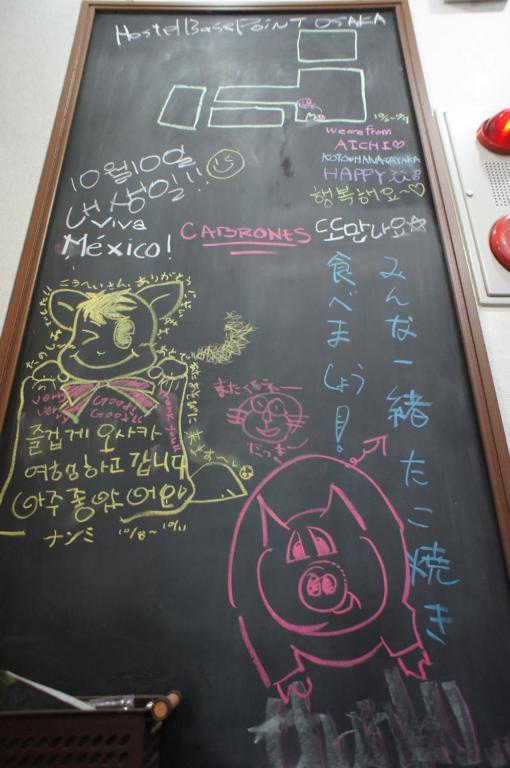 HostelBasePoint OSAKA
10/8~10/11
we are from
AICHI♡
HAPPY
행복해요~♡
10월10일
내 생일!!
Viva
México!
CABRONES
또만나요☆
みんな一緒たこ焼き
食べましょう!
ありがとう
very Good!!
very Good!!
thank you
즐겁게 오사카
여행하고 갑니다
아주좋았어요
ナンミ 10/8~10/11
またくるぞー